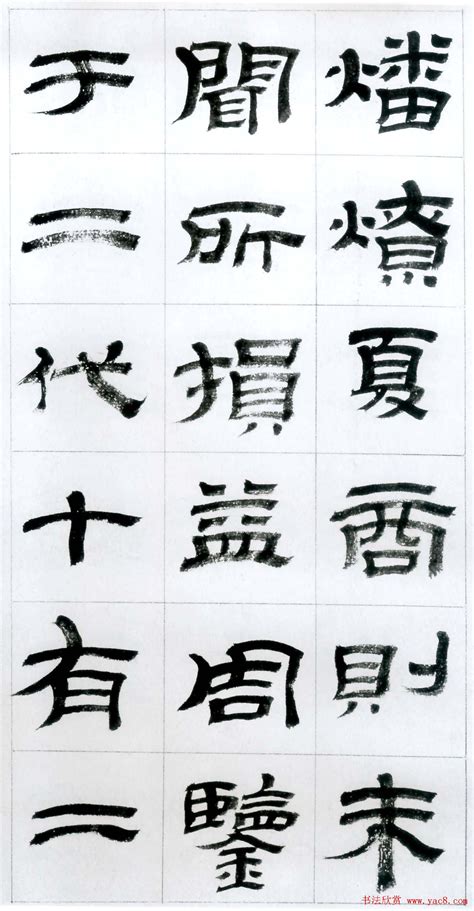 燔燌夏商則未
聞所損益周鑒
于二代十有二
书法欣赏 www.yac8.com